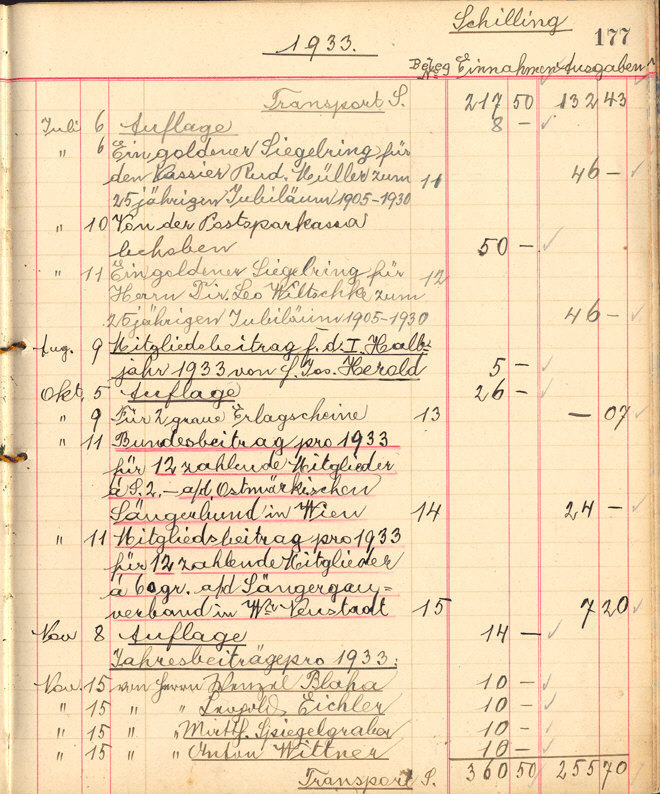 Schilling
177
1933.
Beleg No Einnahmen Ausgaben
Transport S. 217 50 132 43
Juli 6 Auflage 8 -
" 6 Ein goldener Siegelring für
den Kassier Rud. Müller zum 11 46 -
25 jährigen Jubiläum 1905-1930
" 10 Von der Postsparkassa
behoben 50 -
" 11 Ein goldener Siegelring für 12
Herrn Dir. Leo Wiltschke zum
25 jährigen Jubiläum 1905-1930 46 -
Aug. 9 Mitgliedsbeitrag f. d. I. Halb-
jahr 1933 von H. Jos. Herold 5 -
Okt. 5 Auflage 26 -
" 9 Für 2 graue Erlagscheine 13 - 07
" 11 Bundesbeitrag pro 1933
für 12 zahlende Mitglieder
á S. 2.- a/d. Ostmärkischen
Sängerbund in Wien 14 24 -
" 11 Mitgliedsbeitrag pro 1933
für 12 zahlende Mitglieder
á 60 gr. a/d Sängergau=
verband in Wr. Neustadt 15 7 20
Nov 8 Auflage 14 -
Jahresbeiträge pro 1933:
Nov. 15 von Herrn Wenzel Blaha 10 -
" 15 " " Leopold Eichler 10 -
" 15 " " Spiegelgraber 10 -
" 15 " " Anton Wittner 10 -
Transport S. 360 50 255 70